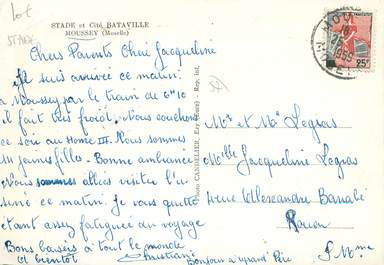 lot
STADE
STADE et Cité BATAVILLE
MOUSSEY (Moselle)
Chers Parents Chère Jacqueline
Je suis arrivée ce matin
a Moussey par le train de 6H10
il fait très froid. Nous couchons
ce soir au Home III. Nous sommes
jeunes filles. Bonne ambiance
Nous sommes allées visiter l'u
sine ce matin. Je vous quitte
étant assez fatiguée du voyage
Bons baisers à tout le monde
a bientôt
Christiane
Bonjour a grand Père
Photo CANDELIER, Ezy (Eure) - Rep. int.
25F
Mr et Me Legras
Mlle Jacqueline Legras
rue Alexandre Barabé
Rouen
S. Mme